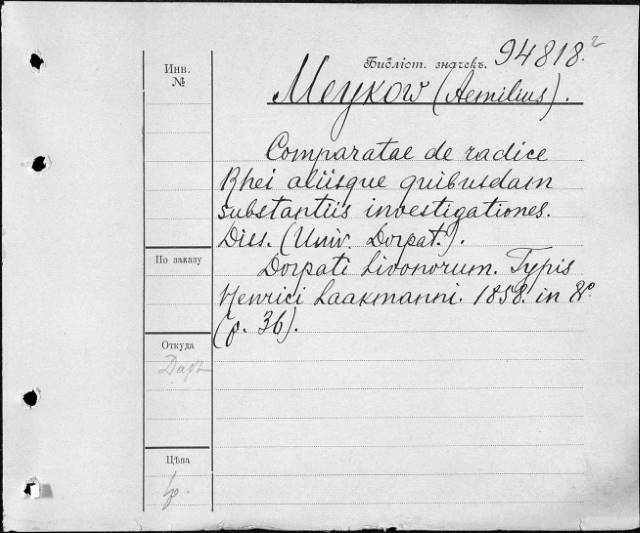 Библіот. значекъ. 94818.²
Инв.
№
Meykow (Aemilius).
Comparatae de radice
Rhei aliisque quibusdam
substantiis investigationes.
Diss. (Univ. Dorpat.).
Dorpati Livonorum. Typis
Henrici Laakmanni. 1858. in 8º.
(p. 36).
По заказу
Откуда
Даръ
Цѣна